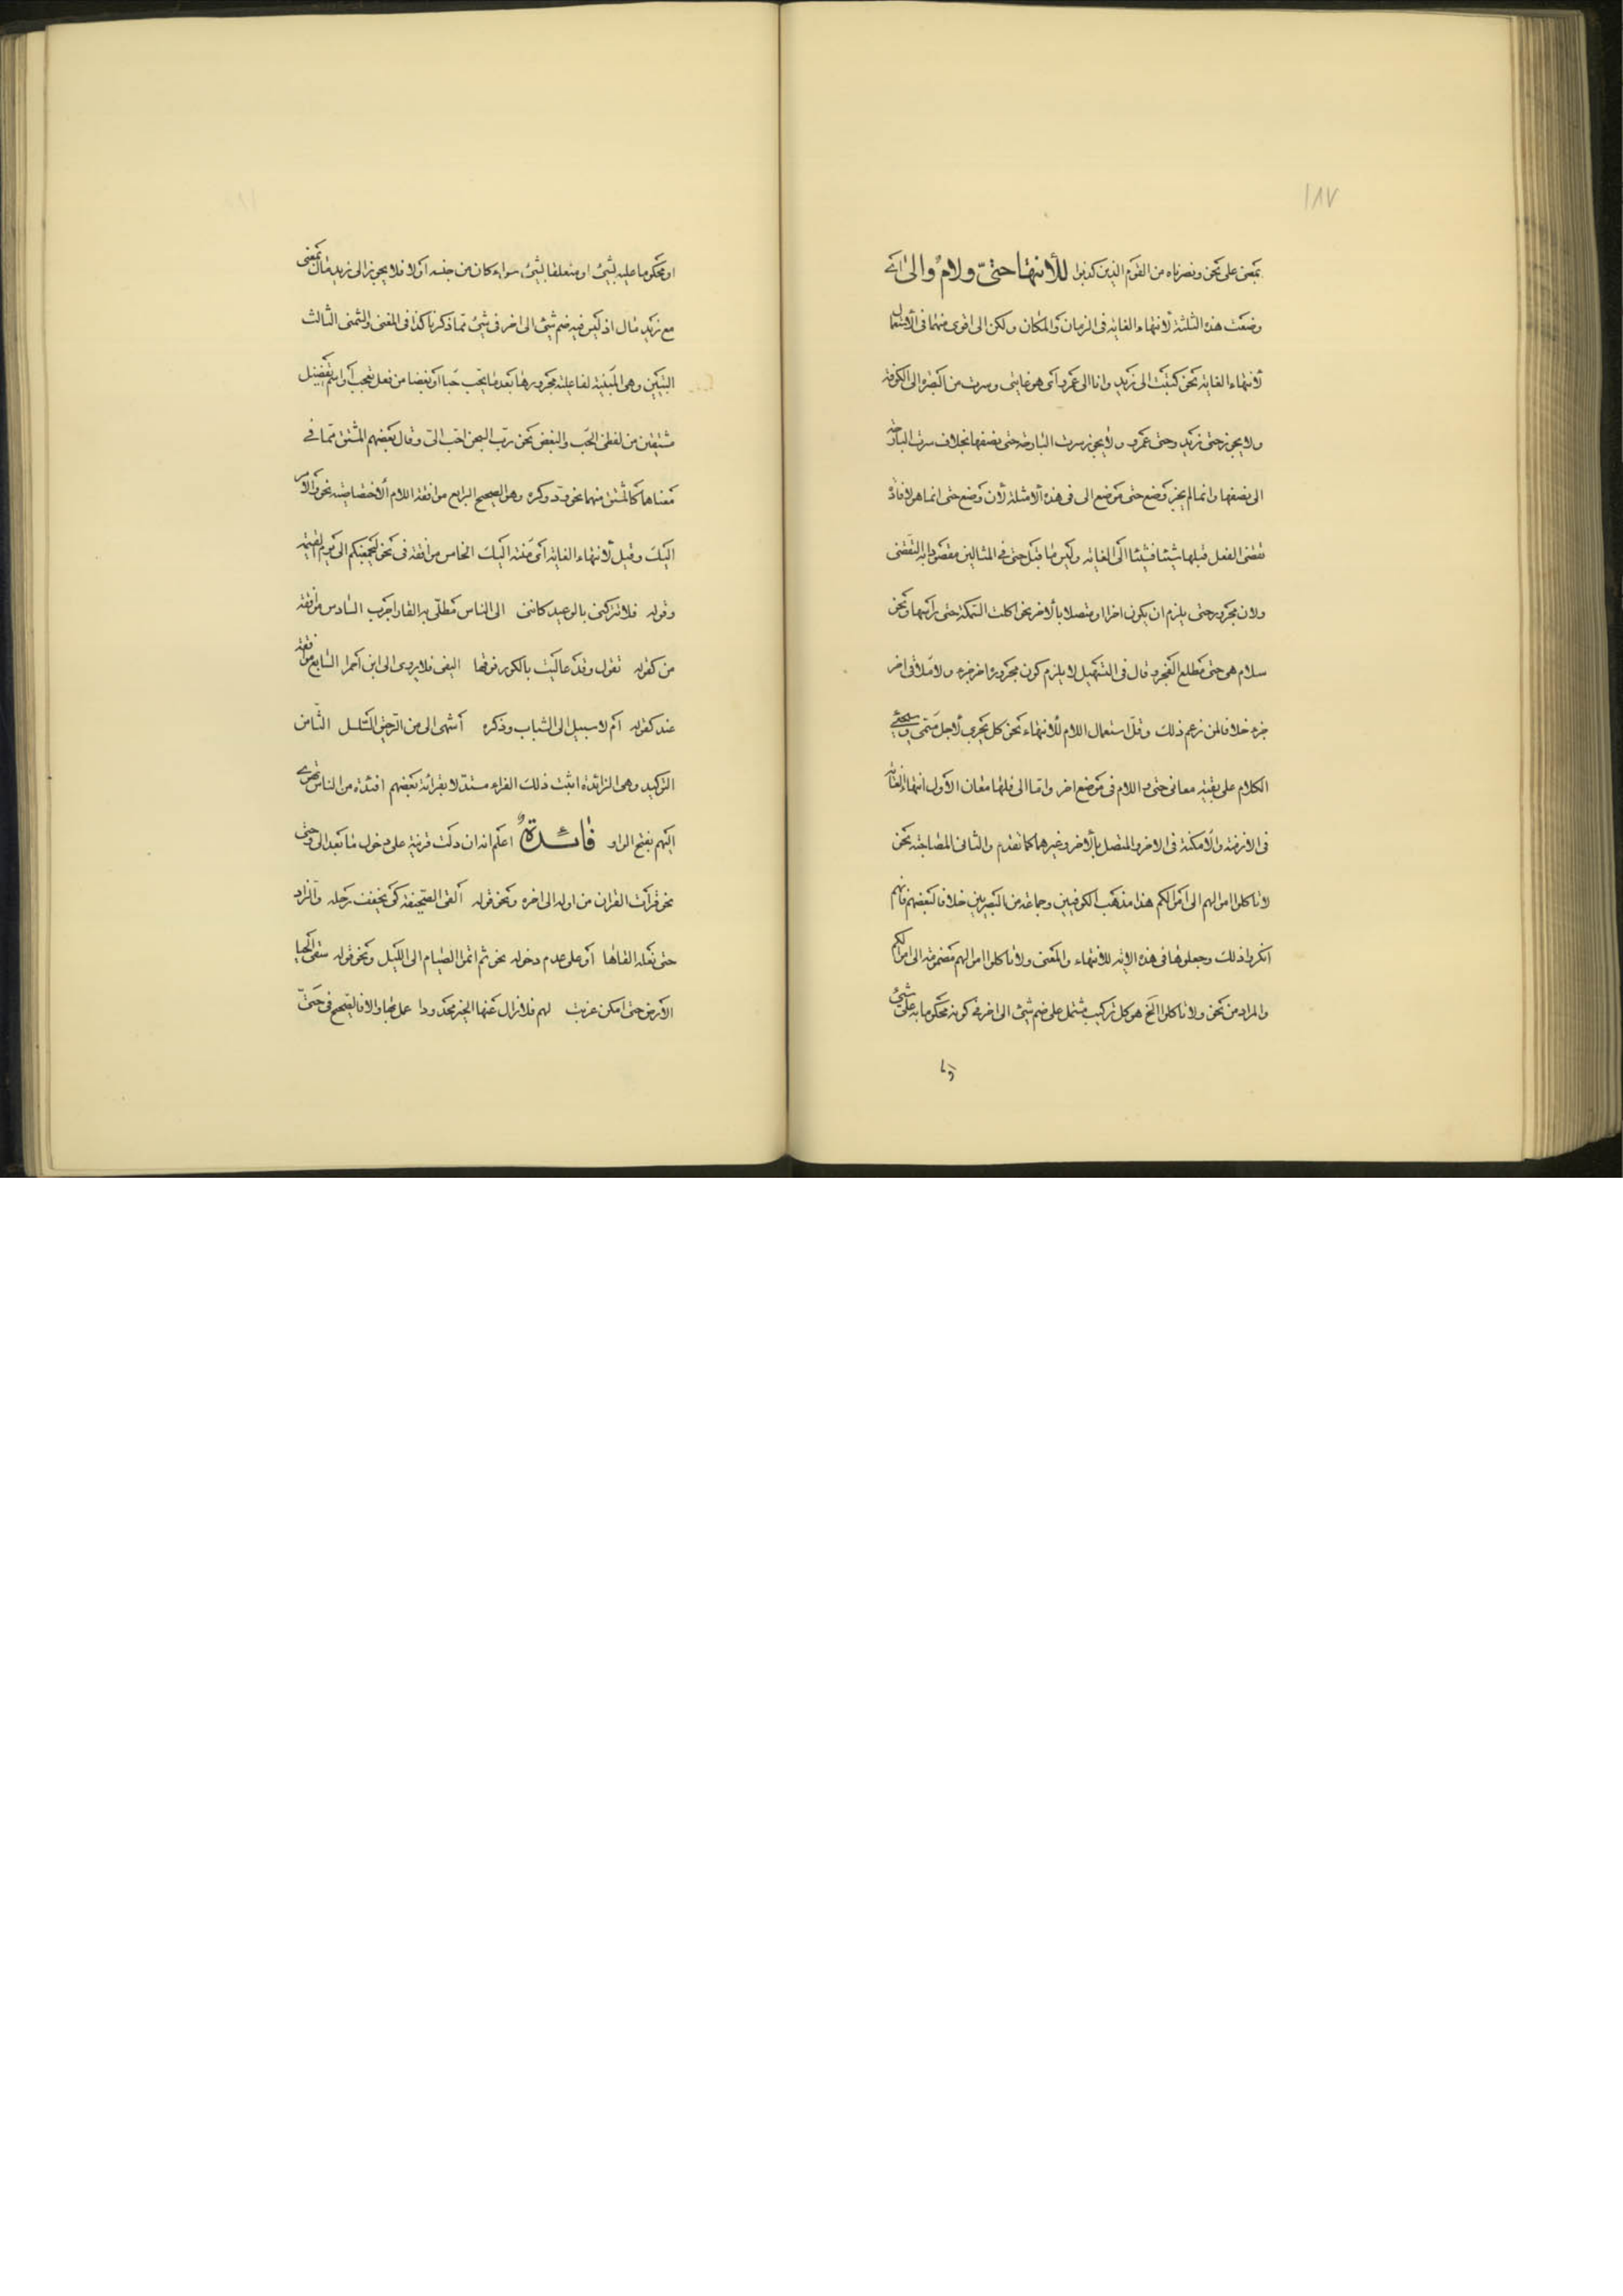 ١٨٧
بمعنى على نحو ونصرناه من القوم الذين كذبوا للأنتها حتىّ ولامٌ والى اى
وضعت هذه الثلثة لأنتهاء الغاية فى الزمان والمكان ولكن الى اقوى منهما فى الأستعمال
لأنتهاء الغاية نحو كتبت الى زيد وانا الى عمرو اى هو غايتى وسرت من البصرة الى الكوفة
ولا يجوز حتى زيد وحتى عمرو ولا يجوز سرت البارحة حتى نصفها بخلاف سرت البارحة
الى نصفها وانما لم يجز وضع حتى موضع الى فى هذه الأمثلة لأن وضع حتى انما هو لافادة
تقضى الفعل قبلها شيئا فشيئا الى الغاية وليس ما قبل حتى فى المثالين مقصودا به التقضى
ولان مجرور حتى يلزم ان يكون اخرا او متصلا بألاخر نحو اكلت السمكة حتى رأسها ونحو
سلام هى حتى مطلع الفجر وقال فى التسهيل لا يلزم كون مجرورها اخر جزء ولا ملاقى اخر
جزء خلافا لمن زعم ذلك وقلّ استعمال اللام للأنتهاء نحو كل يجرى لأجل مسمى وسيجئ
الكلام على بقية معانى حتى واللام فى موضع اخر واما الى فلها معان الأول انتهاء الغاية
فى الازمنة والأمكنة فى الاخر والمتصل بألاخر وغيرهما كما تقدم والثانى المصاحبة نحو
لا تاكلوا اموالهم الى اموالكم هذا مذهب الكوفيين وجماعة من البصريين خلافا لبعضهم فانهم
انكروا ذلك وجعلوها فى هذه الاية للانتهاء والمعنى ولا تاكلوا اموالهم مضمومة الى اموالكم
والمراد من نحو ولا تاكلوا الخ هو كل تركيب مشتمل على ضم شيئ الى اخر فى كونه محكوما به على شيئ
او محكوما عليه بشيئ او متعلقا بشيئ سواء كان من جنسه او لا فلا يجوز الى زيد مال بمعنى
مع زيد مال اذ ليس فيه ضم شيئ الى اخر فى شيئ مما ذكرنا كذا فى المغنى والثمنى الثالث
التبيين وهى المبينة لفاعلية مجرورها بعد ما يحب حبا او بغضا من فعل تعجب او اسم تفضيل
مشتقين من لفظى الحب والبغض نحو رب السجن احب الىّ وقال بعضهم المشتق مما فى
معناها كالمشتق منهما نحو ودّ وكره وهو الصحيح الرابع موافقة اللام ألاختصاصية نحو والأمر
اليك وقيل لأنتهاء الغاية اى منته اليك الخامس موافقة فى نحو ليجمعنكم الى يوم القيمة
وقوله فلا تتركنى بالوعيد كاننى الى الناس مطلىّ به القار اجرب السادس موافقة
من كقوله تقول وقد عاليت بالكور فوقها ايسقى فلا يروى الى ابن احمرا السابع موافقة
عند كقوله ام لا سبيل الى الشباب وذكره أشهى الى من الرحيق السلسل الثّامن
التوكيد وهى الزائدة اثبت ذلك الفراء مستدلا بقرائة بعضهم افئدة من الناس تهوى
اليهم بفتح الواو فائدةٌ اعلم انه ان دلت قرينة على دخول ما بعد الى وحتى
نحو قرأت القران من اوله الى اخره ونحو قوله ألقى الصحيفة كى يخفف رحله والزاد
حتى نعله القاها او على عدم دخوله نحو ثم اتموا الصيام الى الليل ونحو قوله سقى الحيا
الأرض حتى امكن عزيت لهم فلا زال عنها الخير محدودا عمل بها والا فالصحيح فى حتىّ